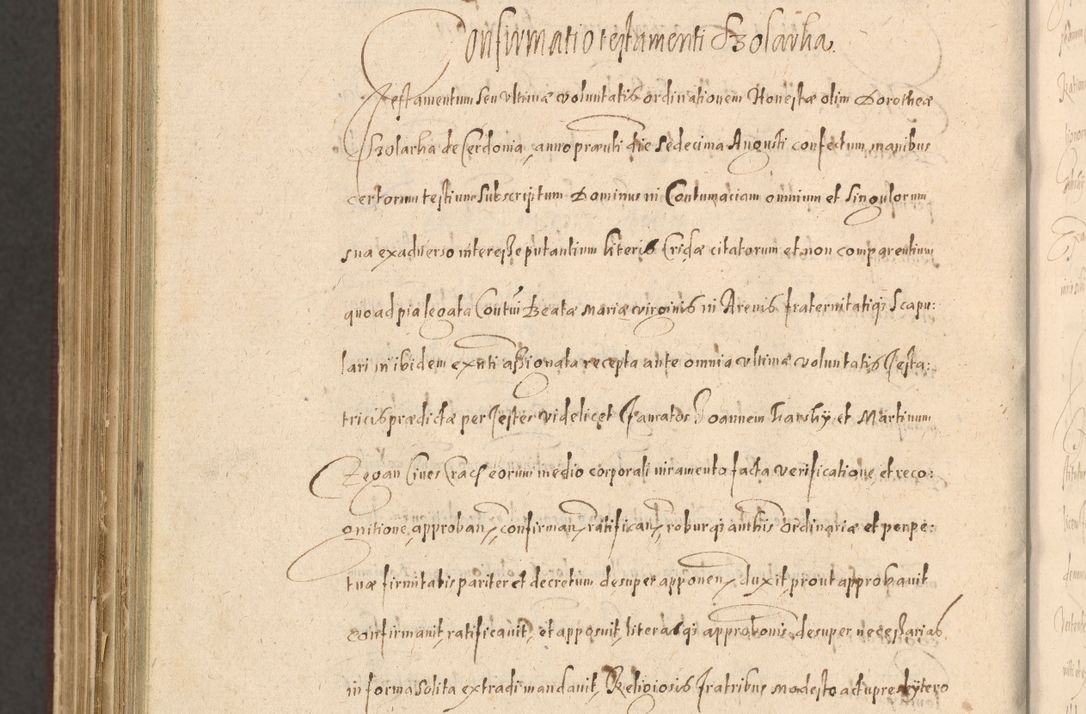 Confirmatio testamenti Szolarka
Testamentum seu ultimæ voluntatis ordinationem Honestæ olim Dorotheæ
Szolarka de Cerdonia, anno prænti die sedecima Augusti confectum manibus
certorum testium subscriptum Dominus in Contumaciam omnium et singulorum
sua ex adverso interesse putantium literis Cridæ citatorum et non comparentium
quo ad pia legata Contui Beatæ Mariæ virginis in Arenis fraternitatiqz Scapu:
laris in ibidem exnti assignata recepta ante omnia ultimæ voluntatis Testa:
tricis prædictæ per Testes videlicet Famatos Joannem et Martinum
Cives Crac eorum medio corporali iuramento facta verificatione et reco:
gnitione, approban, confirman, ratifican, roburqz authis ordinariæ et perpe:
tuæ firmitatis pariter et decretum desuper apponen, duxit prout approbavit
confirmavit, ratificavit, et apposuit, literasqz approbonis desuper necessarias
in forma solita extradi mandavit, Religiosis Fratribus Modesto actu presbytero